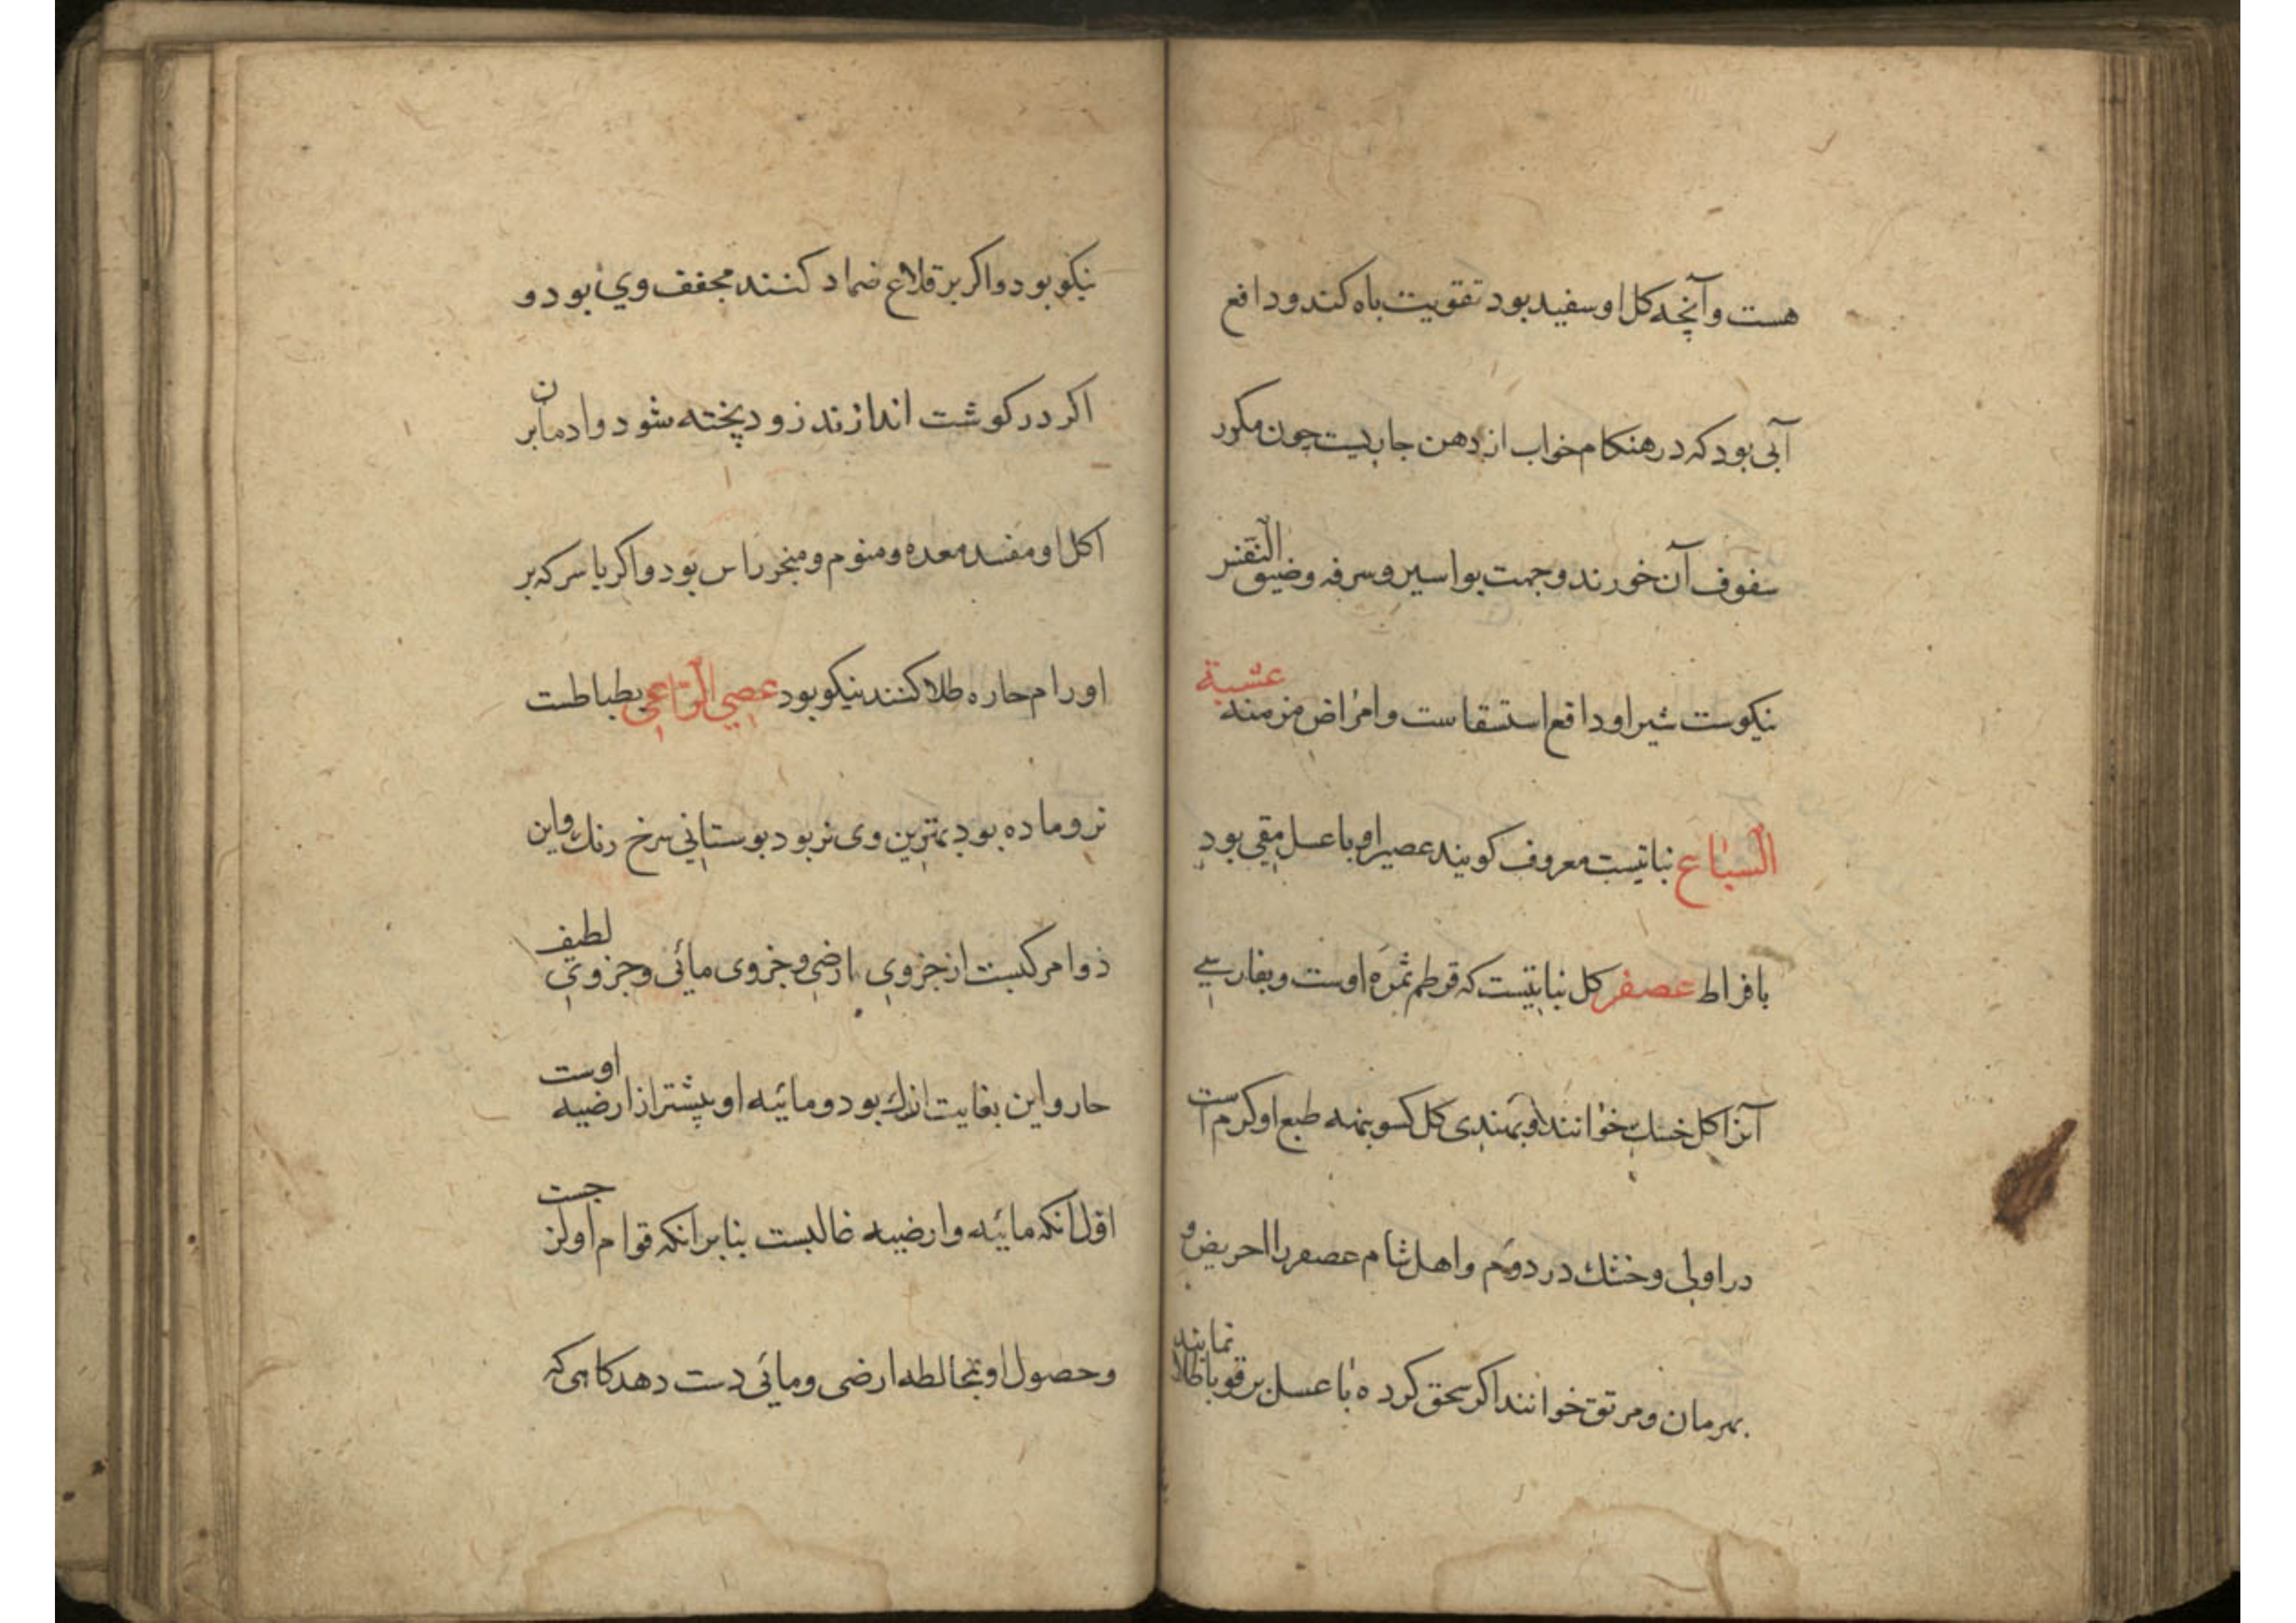 هست و آنچه کل او سفید بود تقویت باه کند و دافع
آبی بود که در هنکام خواب از دهن جاریست چون مکرر
سفوف آن خورند و جهت بواسیر و سرفه و ضیق النفس
نیکوست شیر او دافع استسقاست و امراض مزمنه عشبة
السباع نباتیست معروف کویند عصیر او با عسل مقی بود
بافراط عصفر کل نباتیست که قرطم ثمره اوست و بفارسی
آنرا کل خسک خوانند و بهندی کل کسوبنه طبع او کرم است
در اولی و خشک در دوم و اهل شام عصفر را احریض و
بهرمان و مرتق خوانند اکر سحق کرده با عسل بر قوبا طلا نمایند
نیکو بود و اکر بر قلاع ضماد کنند مجفف وی بود و
اکر در کوشت اندازند زود پخته شود و ادمان بر
اکل او مفسد معده و منوم و مبخر راس بود و اکر با سرکه بر
اورام حاره طلا کنند نیکو بود عصی الراعی بطباطست
نر و ماده بود بهترین وی نر بود بوستانی سرخ رنک و این
دوا مرکبست از جزوی ارضی و جزوی مائی و جزوی لطیف
حار و این بغایت اندک بود و مائیه او بیشتر از ارضیه اوست
اول آنکه مائیه و ارضیه غالبست بنابر آنکه قوام او لزجست
و حصول او بمخالطه ارضی و مائی دست دهد کاهی که